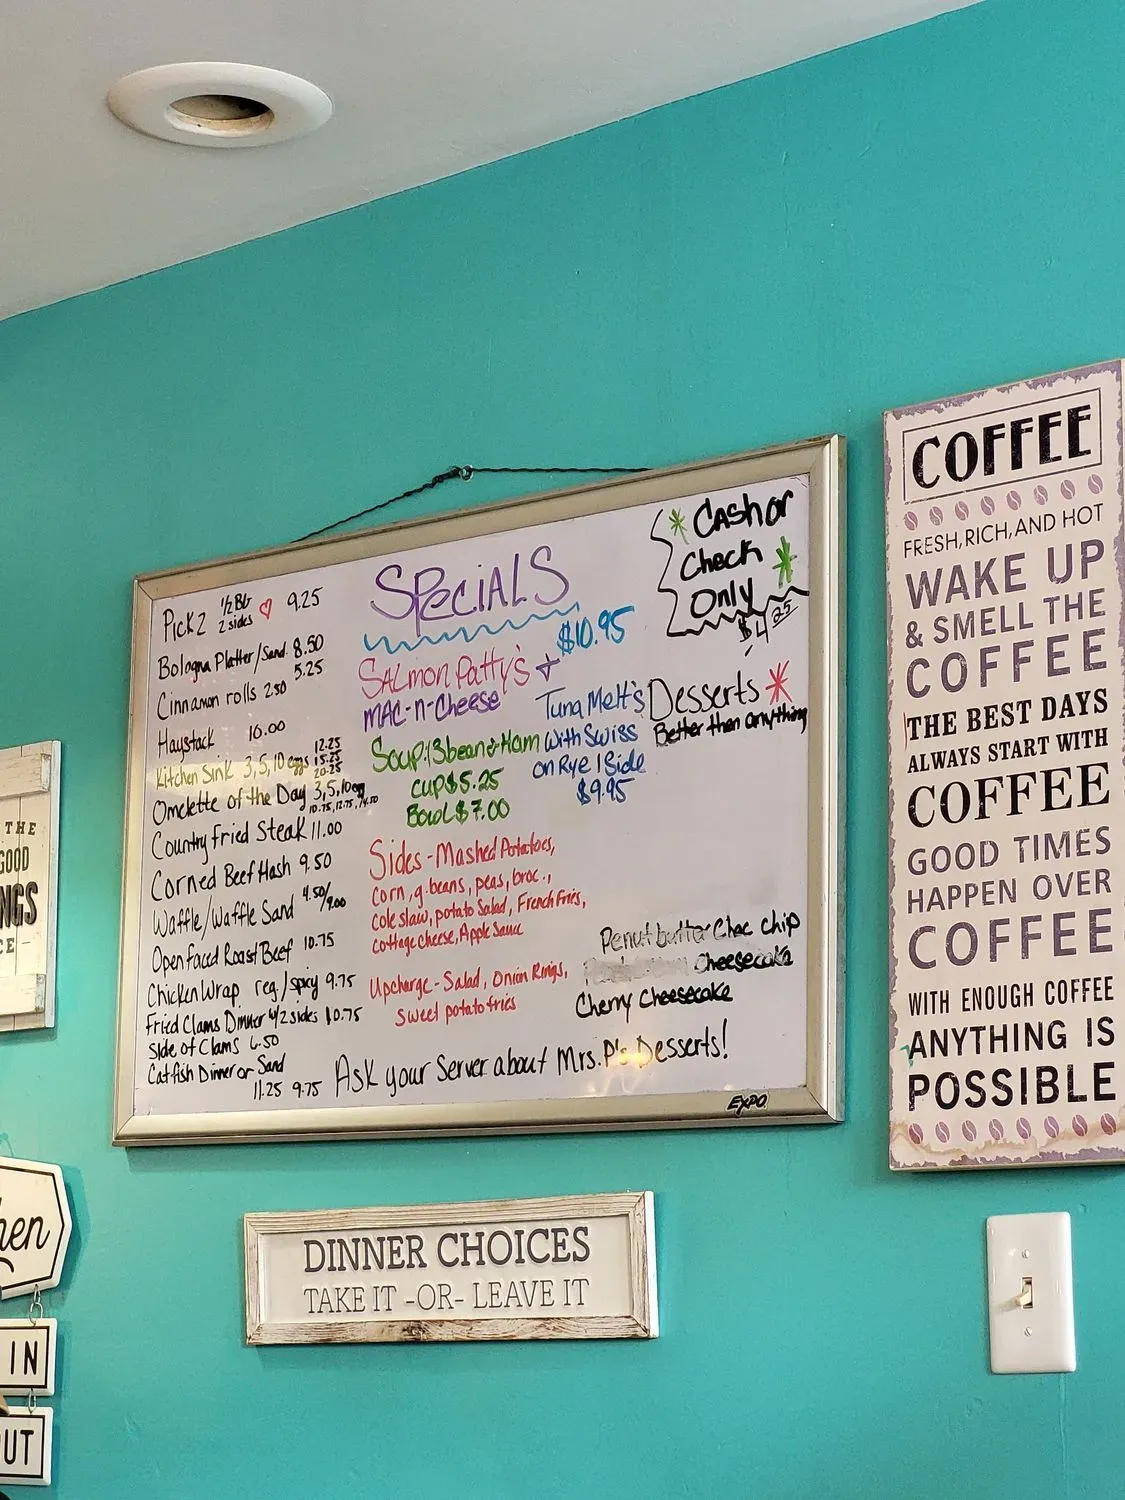 Pick 2 1/2 BLT 2 sides ♡ 9.25
Bologna Platter/Sand. 8.50
5.25
Cinnamon rolls 2.50
Haystack 10.00
Kitchen Sink 3,5,10 eggs 12.25 15.25 20.25
Omelette of the Day 3,5,10 egg
10.75, 12.75, 14.50
Country Fried Steak 11.00
Corned Beef Hash 9.50
Waffle/Waffle Sand 4.50/9.00
Open faced Roast Beef 10.75
Chicken Wrap reg./spicy 9.75
Fried Clams Dinner w/2 sides 10.75
Side of Clams 6.50
Catfish Dinner or Sand
11.25 9.75
SPeciALS
$10.95
SALmon Patty's +
MAC-n-Cheese
Soup: 13 bean & Ham
cup $5.25
Bowl $7.00
Tuna Melt's
with Swiss
on Rye 1 Side
$9.95
Sides - Mashed Potatoes,
corn, g. beans, peas, broc.,
cole slaw, potato Salad, French Fries,
cottage cheese, Apple Sauce
Upcharge - Salad, Onion Rings,
Sweet potato fries
* Cash or
Check *
Only
$4.25
Desserts *
Better then anything
Penut butter Choc chip
Cheesecake
Cherry Cheesecake
Ask your Server about Mrs. P's Desserts!
EXPO
COFFEE
FRESH, RICH, AND HOT
WAKE UP
& SMELL THE
COFFEE
THE BEST DAYS
ALWAYS START WITH
COFFEE
GOOD TIMES
HAPPEN OVER
COFFEE
WITH ENOUGH COFFEE
ANYTHING IS
POSSIBLE
DINNER CHOICES
TAKE IT -OR- LEAVE IT
THE
GOOD
NGS
CE
hen
IN
OUT